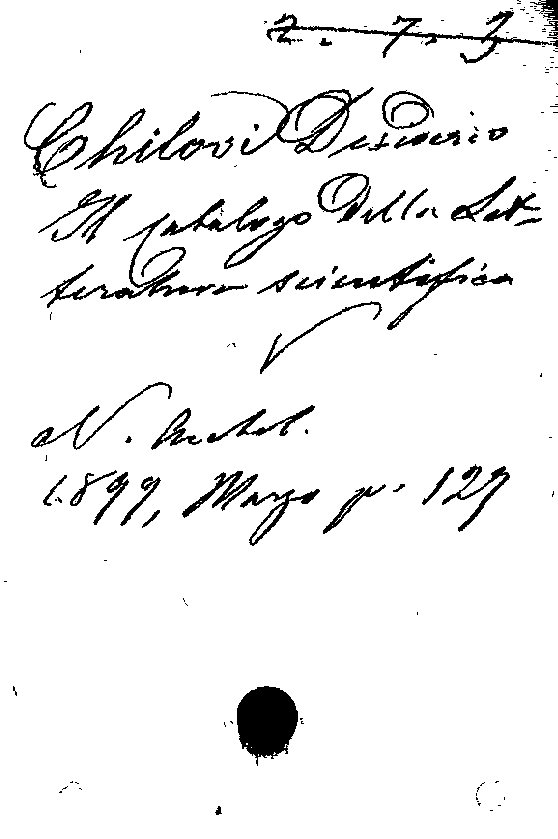 2. 7. 3
Chilovi Desiderio
Il catalogo della Let-
teratura scientifica
V
N. Antol.
1899, Marzo p. 127